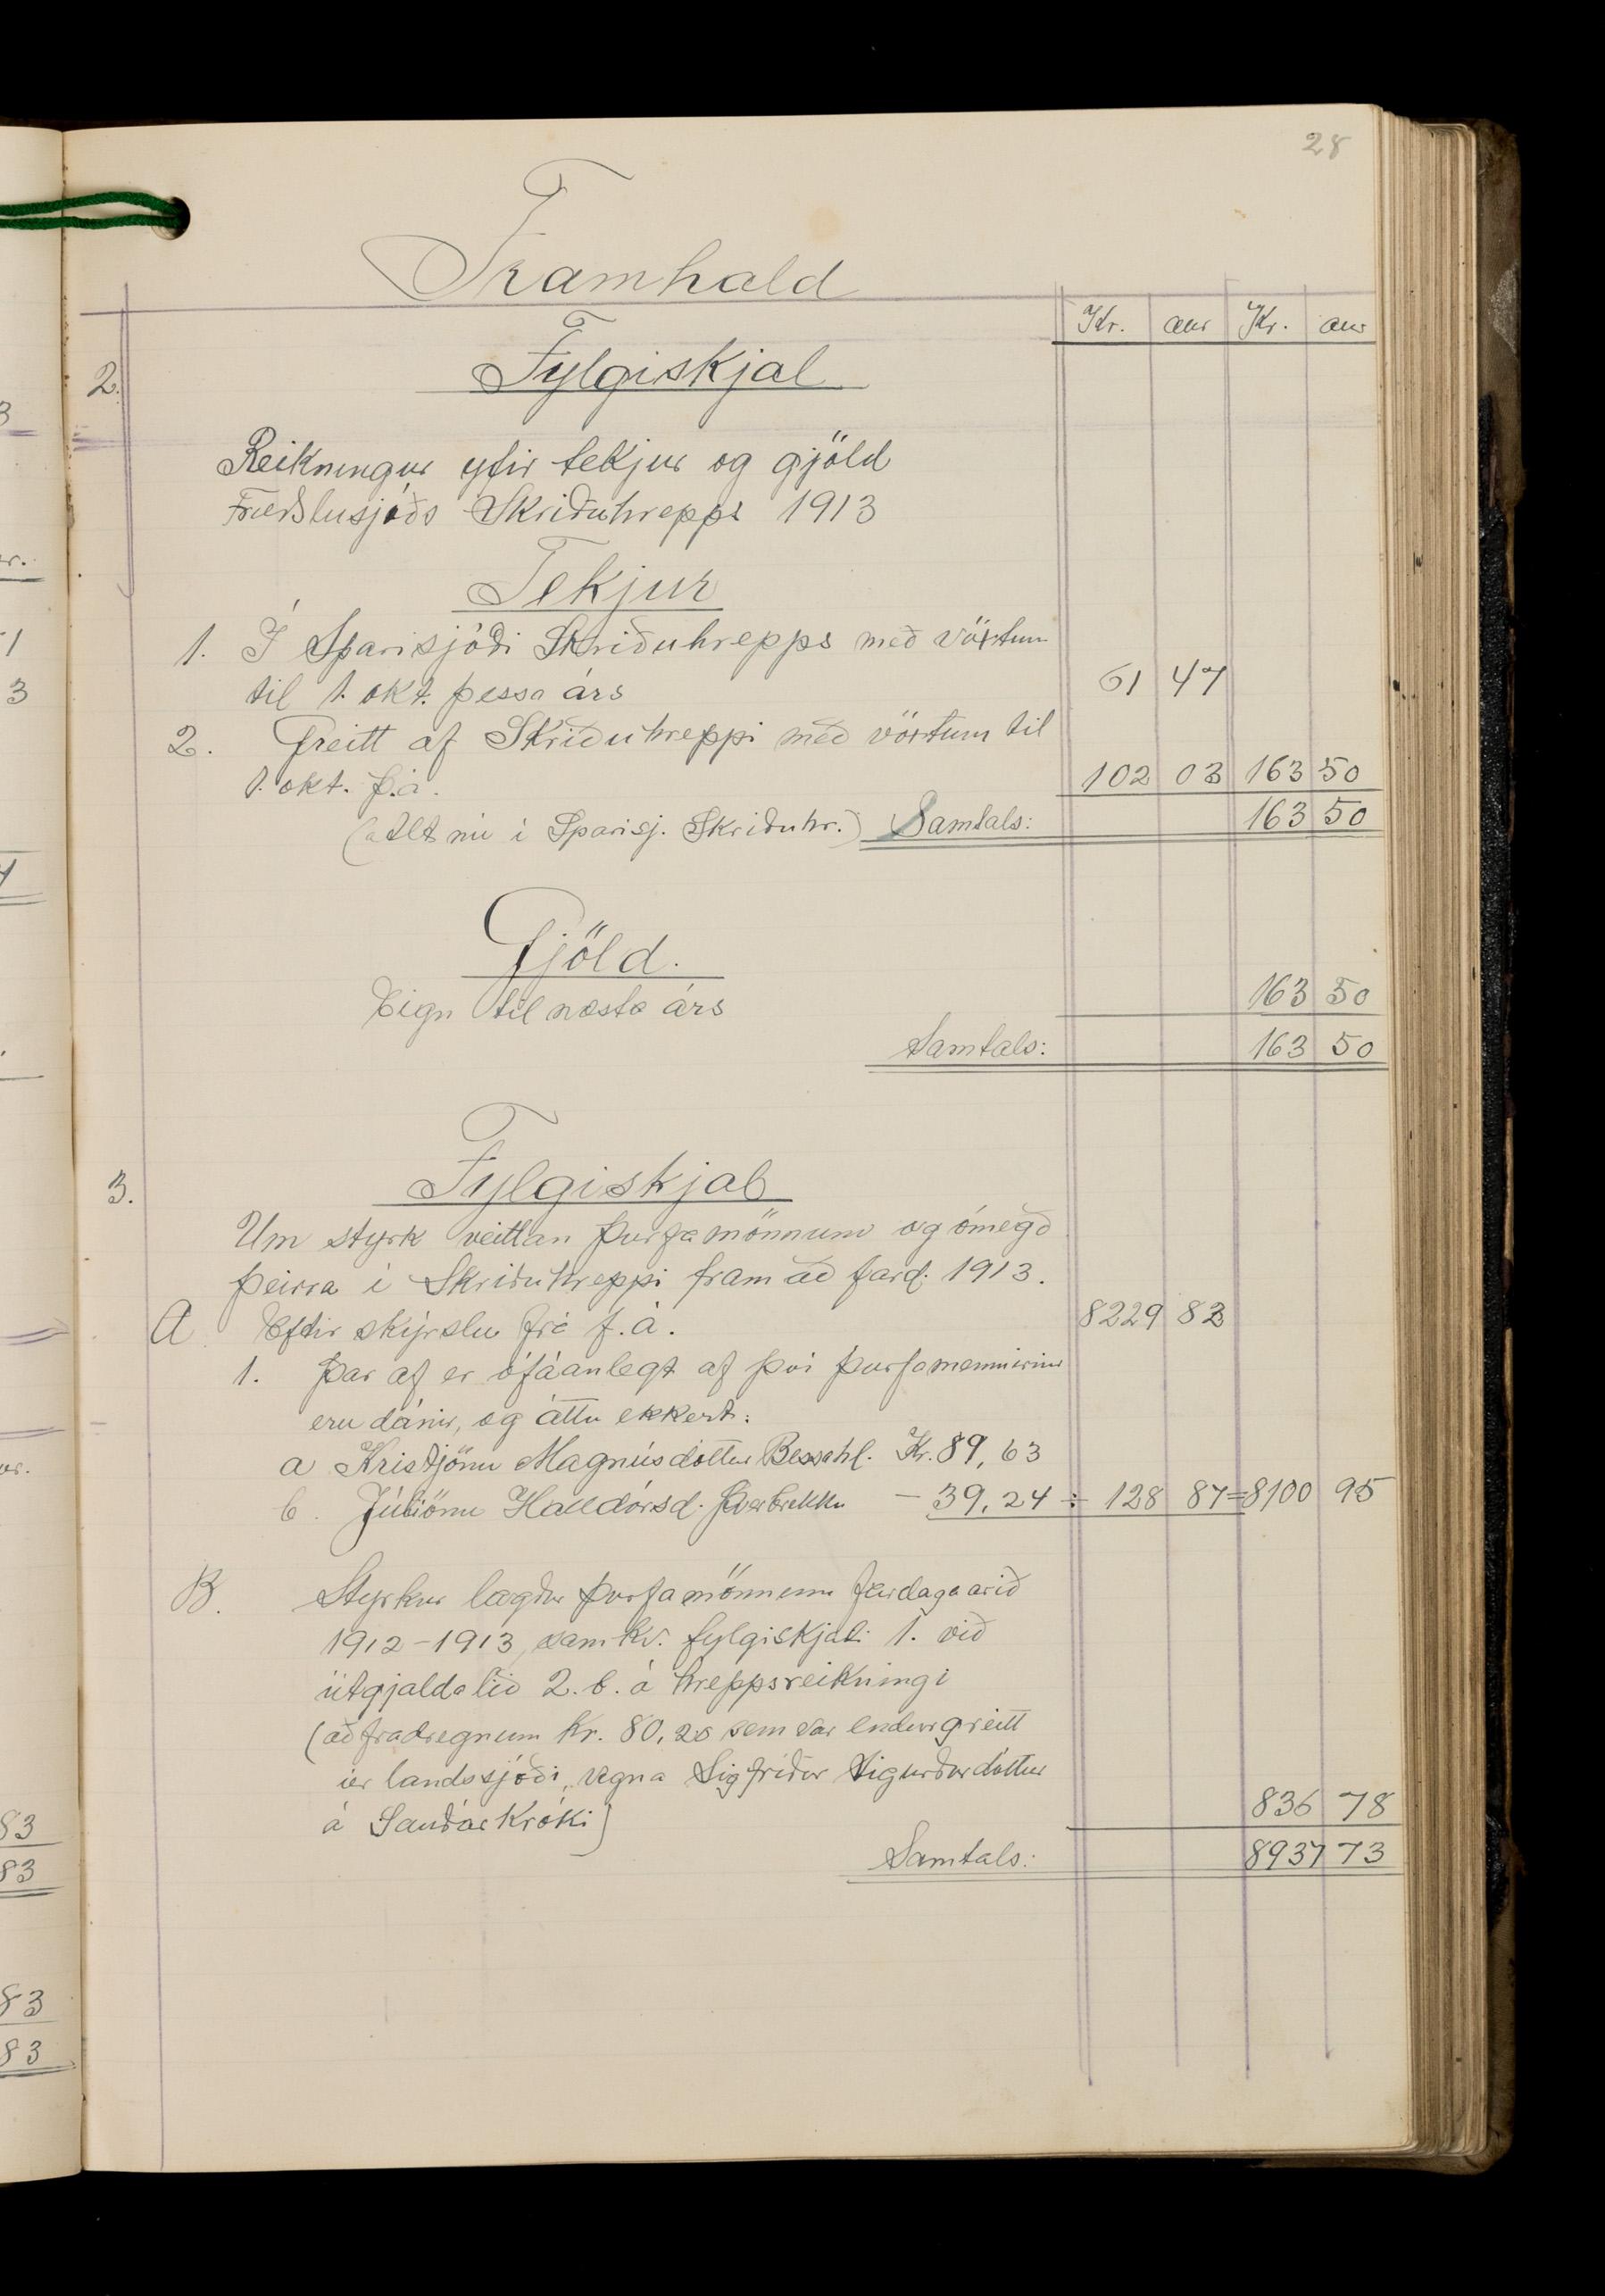 28
Framhald
Kr. aur Kr. aur
2. Fylgiskjal
Reikningur yfir tekjur og gjöld
Fræðslusjóðs Skriðuhrepps 1913
Tekjur
1. Í Sparisjóði Skriðuhrepps með vöxtum
til 1. okt. þessa árs 61 47
2. Greitt af Skriðuhreppi með vöxtum til
1. okt. þ.á. 102 03 163 50
(allt nú í Sparisj. Skriðuhr.) Samtals: 163 50
Gjöld.
Eign til næsta árs 163 50
Samtals: 163 50
3. Fylgiskjal
Um styrk veittan þurfamönnum og ómegð
þeirra í Skriðuhreppi fram að fard. 1913.
A Eftir skýrslu frá f.á. 8229 82
1. Þar af er ófáanlegt af því þurfamennirnir
eru dánir, og áttu ekkert:
a Kristjönu Magnúsdóttur Bessahl. Kr. 89,63
b. Júlíönu Halldórsd. Þverbrekku - 39,24 ÷ 128 87 = 8100 95
B. Styrkur lagður þurfamönnum fardagaárið
1912-1913, samkv. fylgiskjali 1. við
útgjaldalið 2. b. á hreppsreikningi
(að frádregnum kr. 80,20 sem var endurgreitt
úr landssjóði, vegna Sigfríðar Sigurðardóttur
á Sauðárkróki) 836 78
Samtals: 8937 73
3
1
3
83
83
83
83